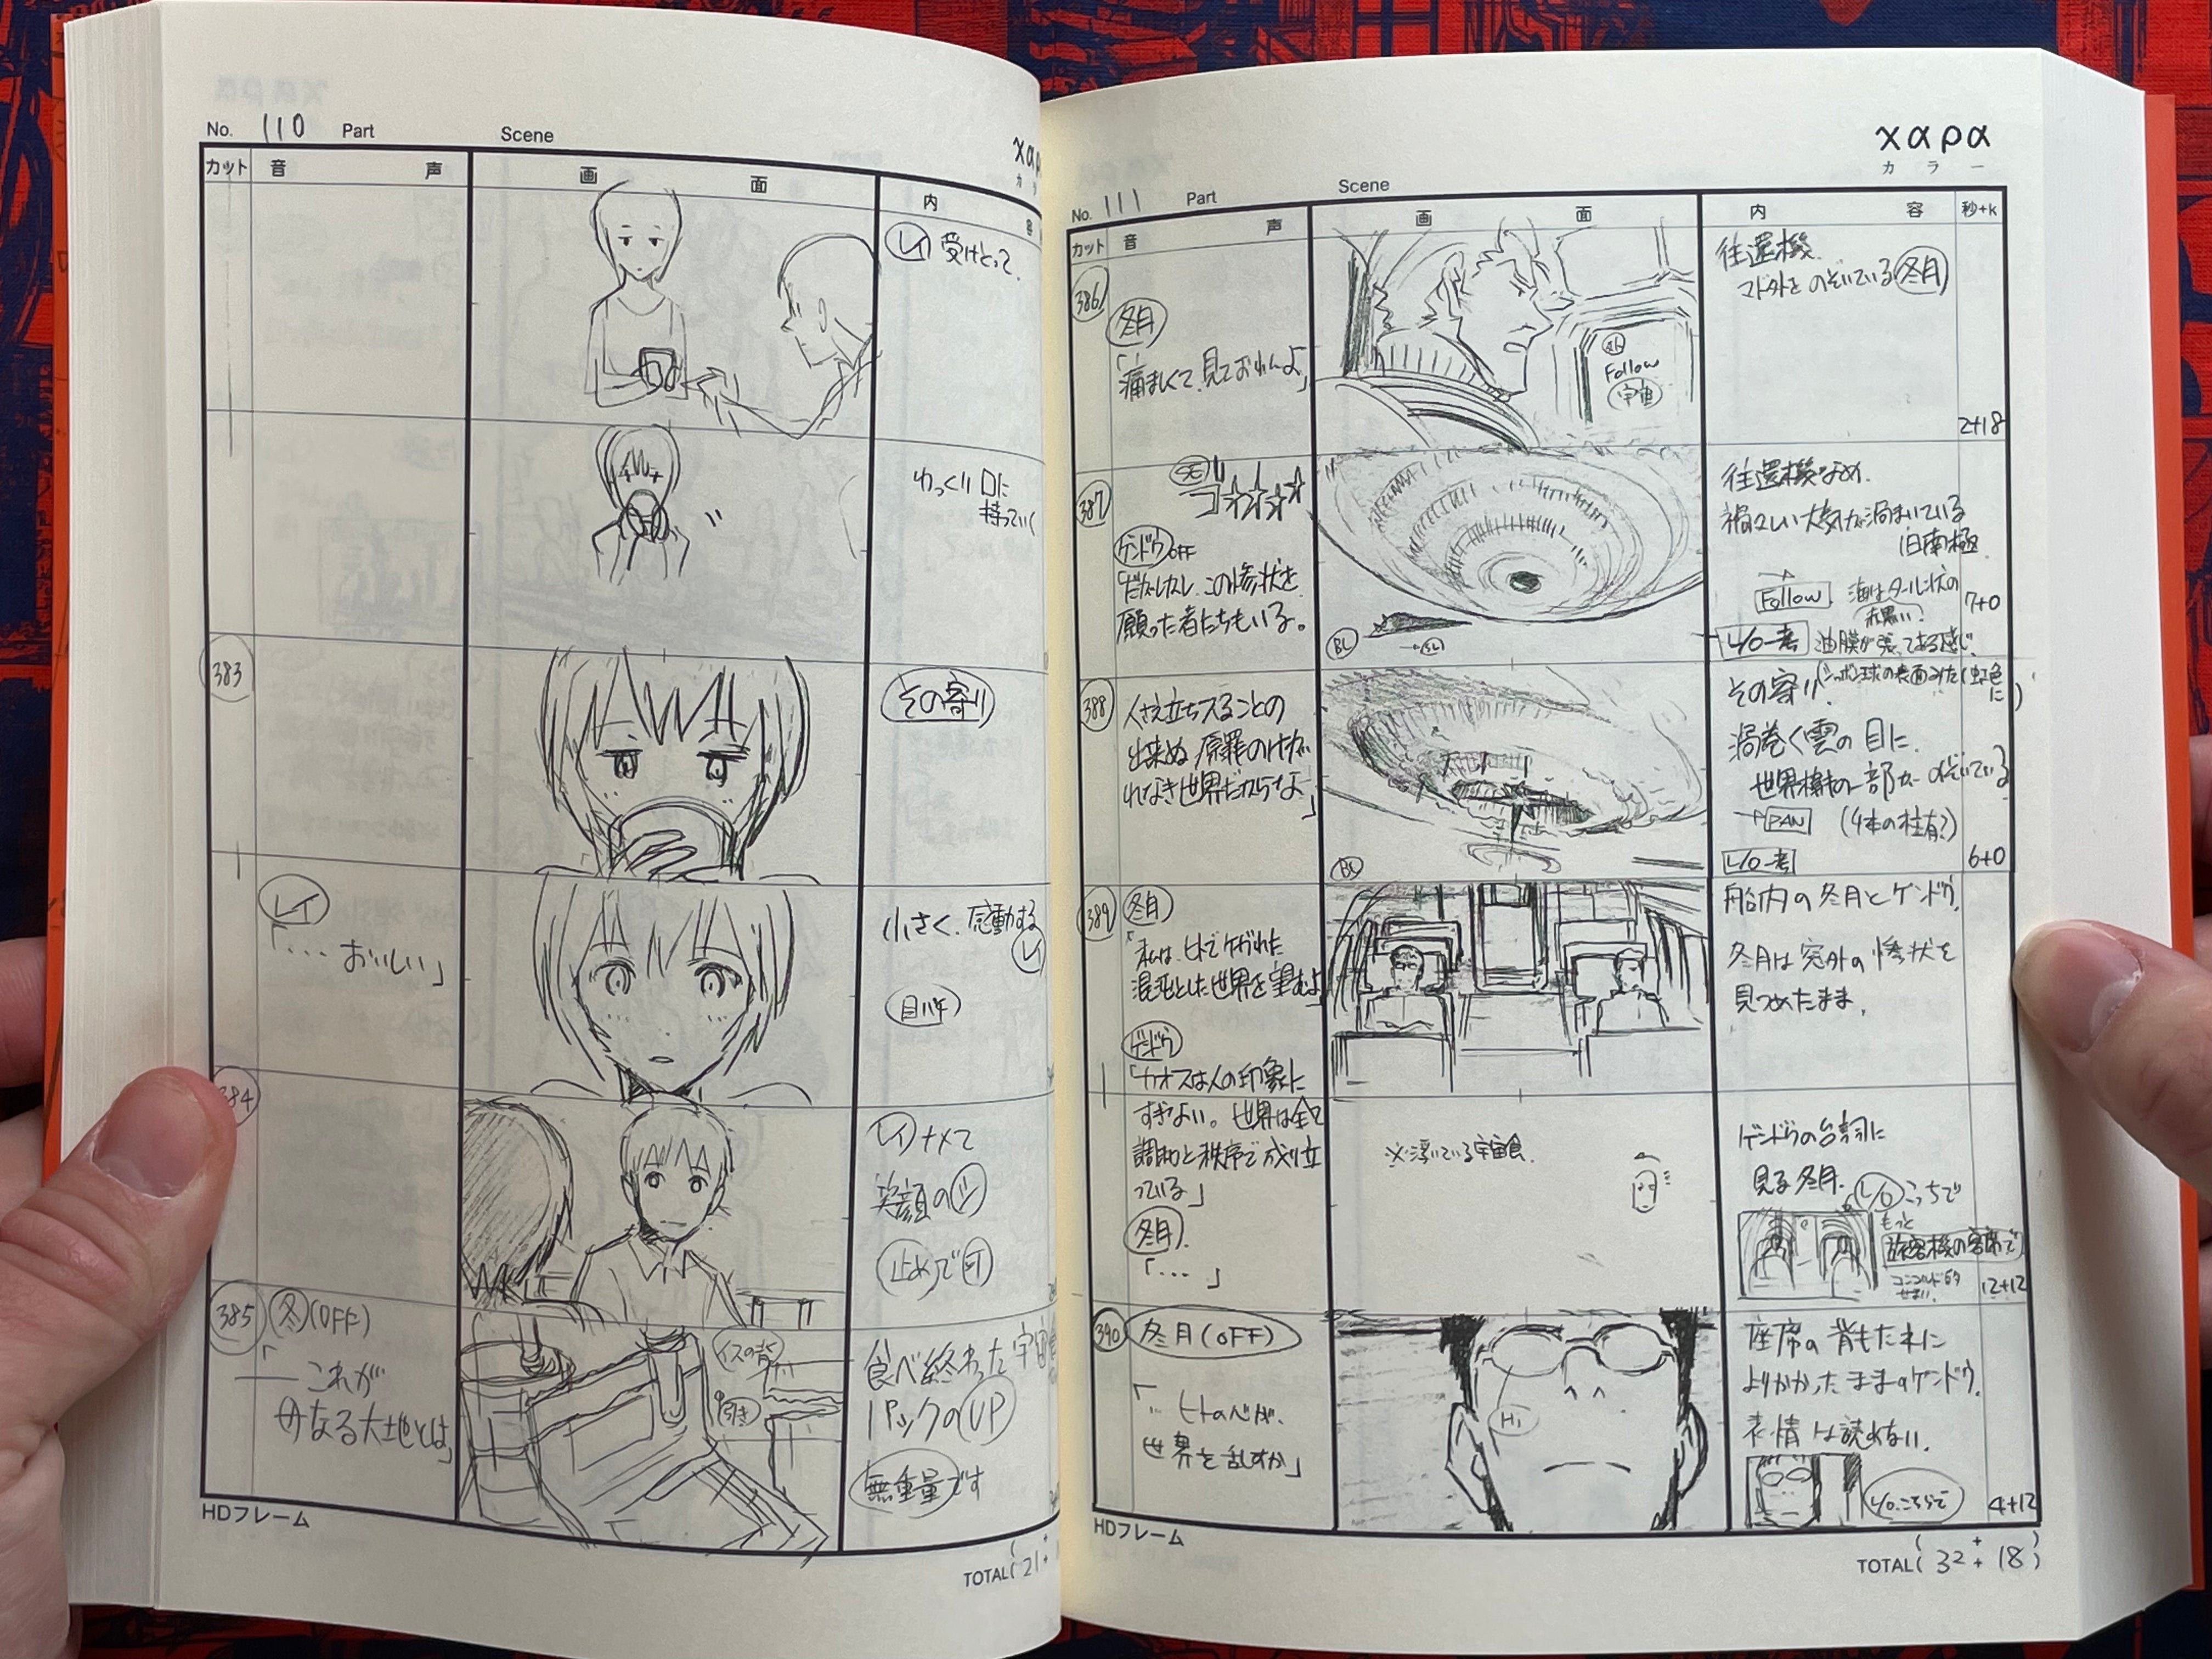 No. 110 Part Scene
χαρ
カ
カット 音 声 画 面 内 容
レイ 受けとって、
ゆっくり口に
持っていく
383
その寄り
レイ
「… おいしい」
小さく、感動する
レイ
目パチ
384
レイ ナメて
笑顔のシ
止めで可
385
冬(OFF)
「
── これが
母なる大地とは」
イスの背
引き
食べ終わった宇宙食
パックのUP
無重量です
HDフレーム
TOTAL( 21 +
χαρα
カ ラ ー
No. 111 Part Scene
カット 音 声 画 面 内 容 秒+k
386
冬月
「痛ましくて、見ておれんよ」
Follow
宇宙
往還機、
マド外を のぞいている 冬月
2+18
387
SE ゴ☆☆☆☆
ゲンドウ OFF
「だがしかし、この惨状を
願った者たちもいる。
BL
→ SL
往還機なめ、
禍々しい大気が渦まいている
旧南極
Follow 海はタール状の
赤黒い
7+0
L/O一考 油膜が張ってある感じ
(シャボン球の表面みたく虹色
に)
388
人さえ立ち入ることの
出来ぬ 原罪のけが
れなき世界だからな」
BL
その寄り
渦巻く雲の目に、
世界樹の一部が のぞいている
→PAN (4本の柱有?)
L/O一考
6+0
389
冬月
「私は、ヒトでケガれた
混沌とした世界を望むよ」
ゲンドウ
「カオスは人の印象に
すぎない。世界は全て
調和と秩序で成り立
っている」
冬月
「… 」
※浮いている宇宙食、
船内の冬月とゲンドウ、
冬月は窓外の惨状を
見つめたまま、
ゲンドウの台詞に
見る冬月、
L/O こっちで
もっと
旅客機の客席で
コンコルド的
せまい、
12+12
390
冬月(OFF)
「… ヒトの心が、
世界を乱すか」
Hi
座席の背もたれに
よりかかったままのゲンドウ、
表情は読めない、
L/O、こちらで
4+12
HDフレーム
TOTAL( 32 + 18 )